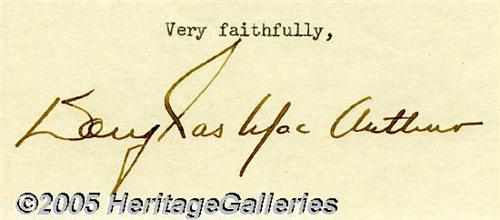 Very faithfully,
Douglas MacArthur
©2005 HeritageGalleries